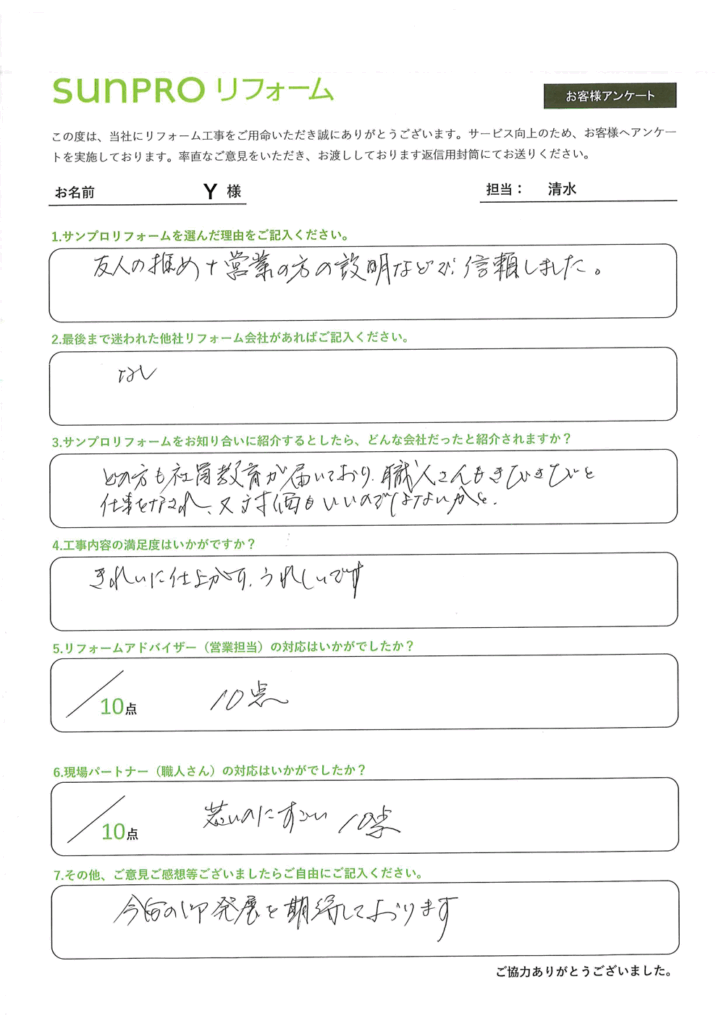 sunPRO リフォーム
お客様アンケート
この度は、当社にリフォーム工事をご用命いただき誠にありがとうございます。サービス向上のため、お客様へアンケー
トを実施しております。率直なご意見をいただき、お渡ししております返信用封筒にてお送りください。
お名前 Y 様 担当： 清水
1.サンプロリフォームを選んだ理由をご記入ください。
友人の推め＋営業の方の説明などで信頼しました。
2.最後まで迷われた他社リフォーム会社があればご記入ください。
なし
3.サンプロリフォームをお知り合いに紹介するとしたら、どんな会社だったと紹介されますか？
どの方も社員教育が届いており、職人さんもきびきびと
仕事をなされ、又対価もいいのではないかと.
4.工事内容の満足度はいかがですか？
きれいに仕上がす、うれしいです
5.リフォームアドバイザー（営業担当）の対応はいかがでしたか？
／10点 10点
6.現場パートナー（職人さん）の対応はいかがでしたか？
／10点 若いのにすごい 10点
7.その他、ご意見ご感想等ございましたらご自由にご記入ください。
今后の御発展を期待しております
ご協力ありがとうございました。